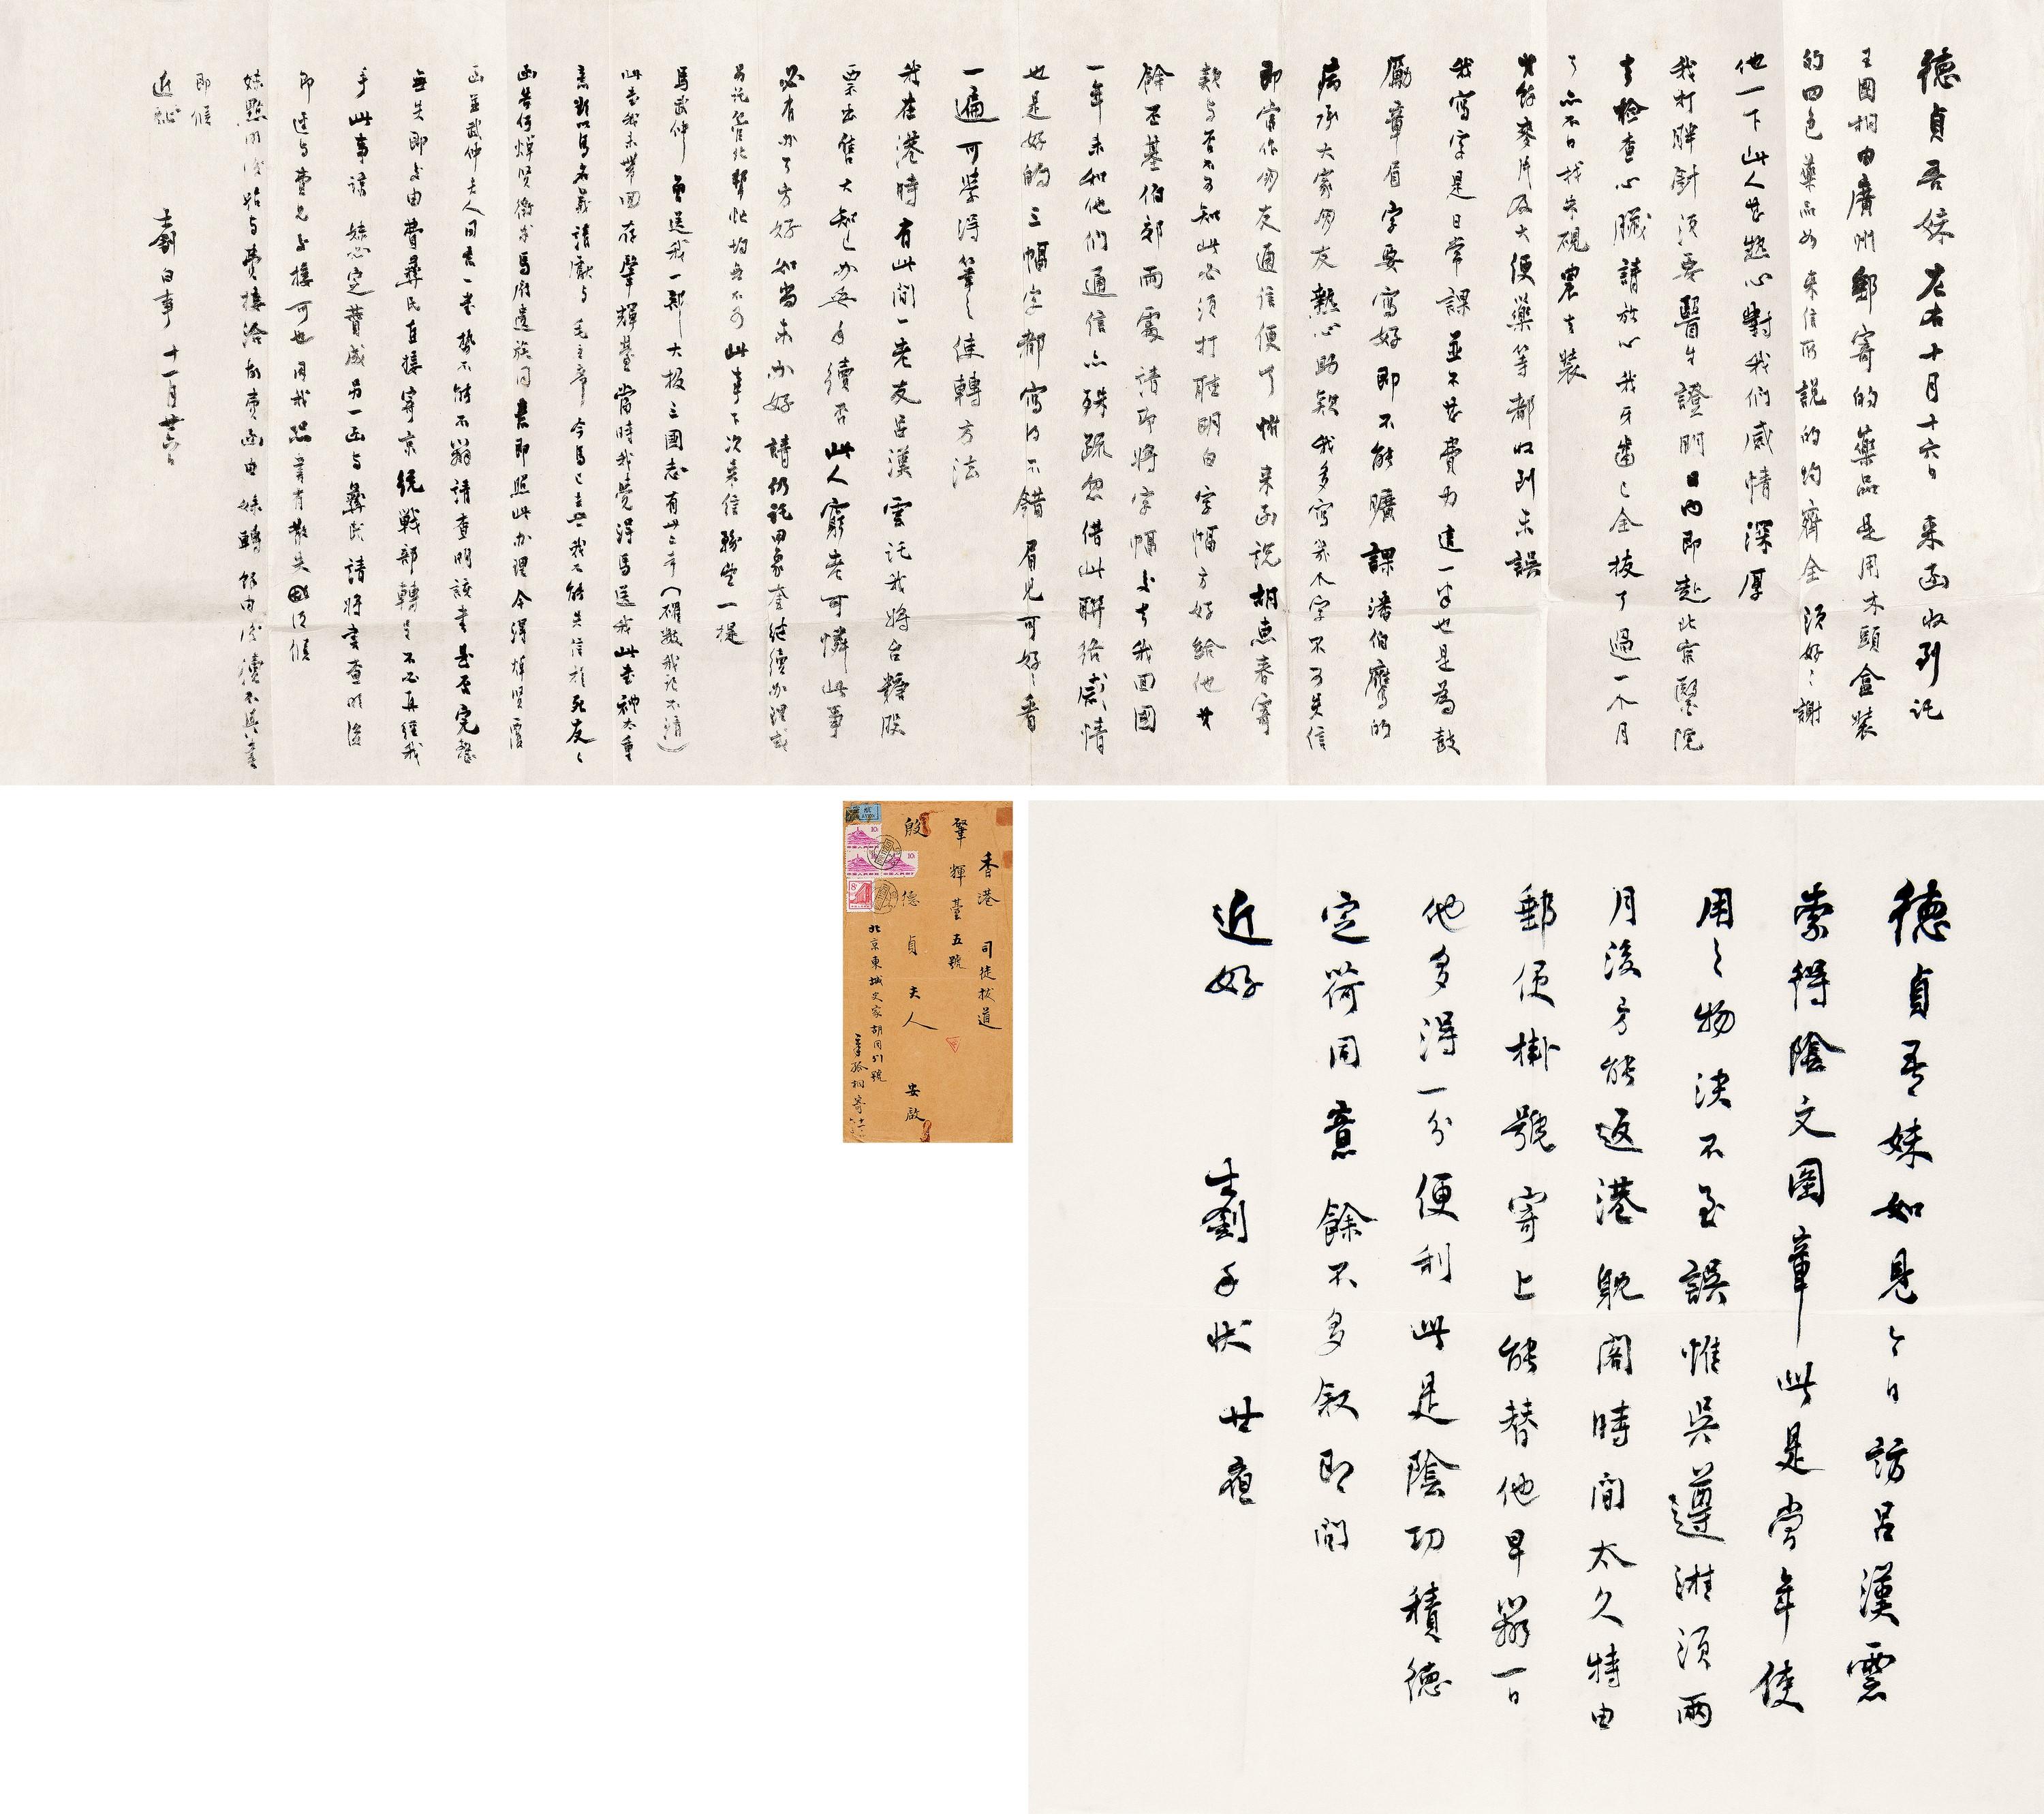 德貞吾妹左右十月十六日來函收到託
王國桐由廣州郵寄的藥品是用木頭盒裝
的四色藥品如來信所說的均齊全須好好謝
他一下此人甚熱心對我們感情深厚
我打胖針須要醫生證明日內即赴北京醫院
去檢查心臟請放心我牙齒已全拔了過一个月
了亦不日找朱硯農去裝
麥片及大便藥等都收到示誤
我寫字是日常課並不甚費力這一半也是為鼓
勵章眉字要寫好即不能曠課潘伯鷹的
病承大家朋友熱心助欵我多寫幾个字不可失信
即當作朋友通信便了惟來函說胡惠春寄
欵與否不可知此必須打聽明白字幅方好給他
餘丕基伯郊兩處請即將字幅我回國
一年未如他們通信亦殊疏忽借此聯絡感情
也是好的三幅字都寫得不錯眉兒可好好看
一遍可學得筆筆使轉方法
我在港時有此間一老友呂漢雲託我將台糖股
票出售大知已辦手續否此人窮老可憐此事
必有辦了方好如尚未辦好請仍託田象奎繼續辦理或
另託管北幫忙均無不可此事下次來信務望一提
馬武仲曾送我一部大板三國志有廿二本(確數我記不清)
此書我未帶回存肇輝臺當時我覺得馬送我此書神太重
意欲以馬名義請獻與毛主席今馬已去世我不能失信於死友
函告何焯賢徵求馬府遺族同意即照此辦理今得焯賢覆
函並武仲夫人同意一書勢不能不辦請查明該書是否完整
無失即由費彝民直接寄京統戰部轉呈不必再經我
手此事請妹決定費處另一函與彝民請將書查明後
即送與費兄接可也因我恐書有散失須候
妹點明後始與費接洽故費函由妹轉餘由後續不具並
即候
近祉
士釗白事 十一月廿六日
香港 司徒拔道
肇輝臺五號
殷德貞夫人 安啟
北京東城史家胡同51號
章孤桐寄
德貞吾妹如見今日訪呂漢雲
索得陰文圖章此是當年使
用之物決不至誤惟吳遵湘須兩
月後方能返港躭閣時間太久特由
郵便掛號寄上能替他早辦一日
他多得一分便利此是陰功積德
定荷同意餘不多敘即問
近好
士釗手狀 廿夜